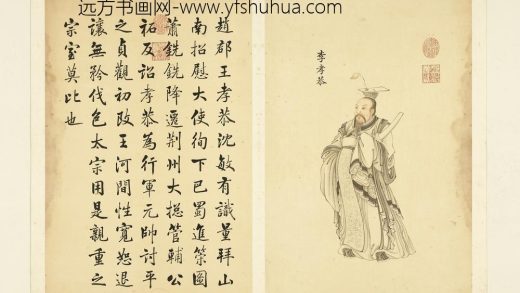 远方书画网-www.yfshuhua.com
趙郡王孝恭沈敏有識量拜山
南招慰大使徇下巴蜀進策圖
蕭銑銑降遷荆州大揔管輔公
祏反詔孝恭為行軍元帥討平
之貞觀初改王河間性寬恕退
讓無矜伐色太宗用是親重之
宗室莫比也
李孝恭